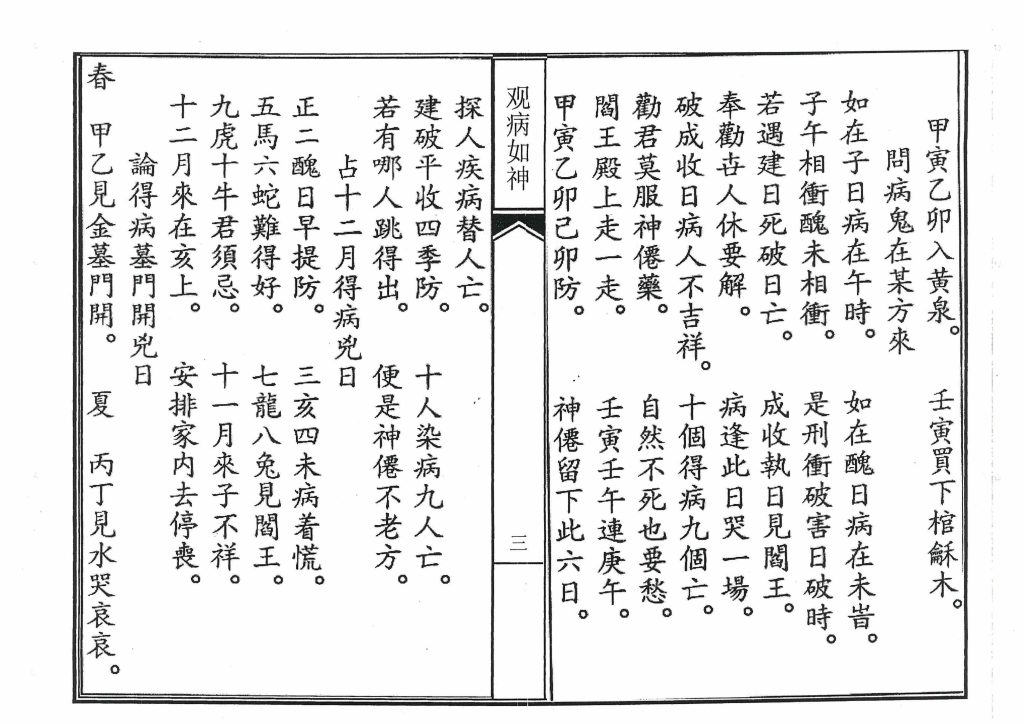 甲寅乙卯入黃泉。 壬寅買下棺龢木。
問病鬼在某方來
如在子日病在午時。 如在醜日病在未旹。
子午相衝醜未相衝。 是刑衝破害日破時。
若遇建日死破日亡。 成收執日見閻王。
奉勸卋人休要解。 病逢此日哭一場。
破成收日病人不吉祥。 十個得病九個亡。
勸君莫服神僊藥。 自然不死也要愁。
閻王殿上走一走。 壬寅壬午連庚午。
甲寅乙卯己卯防。 神僊留下此六日。
观病如神
三
探人疾病替人亡。
建破平收四季防。 十人染病九人亡。
若有哪人跳得出。 便是神僊不老方。
占十二月得病兇日
正二醜日早提防。 三亥四未病着慌。
五馬六蛇難得好。 七龍八兔見閻王。
九虎十牛君須忌。 十一月來子不祥。
十二月來在亥上。 安排家内去停喪。
論得病墓門開兇日
春 甲乙見金墓門開。 夏 丙丁見水哭哀哀。